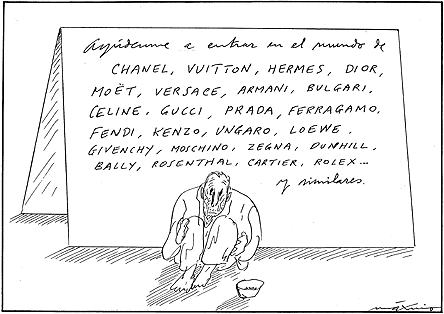 Ayúdenme a entrar en el mundo de
CHANEL, VUITTON, HERMES, DIOR,
MOËT, VERSACE, ARMANI, BULGARI,
CELINE, GUCCI, PRADA, FERRAGAMO,
FENDI, KENZO, UNGARO, LOEWE,
GIVENCHY, MOSCHINO, ZEGNA, DUNHILL,
BALLY, ROSENTHAL, CARTIER, ROLEX...
y similares.
máximo